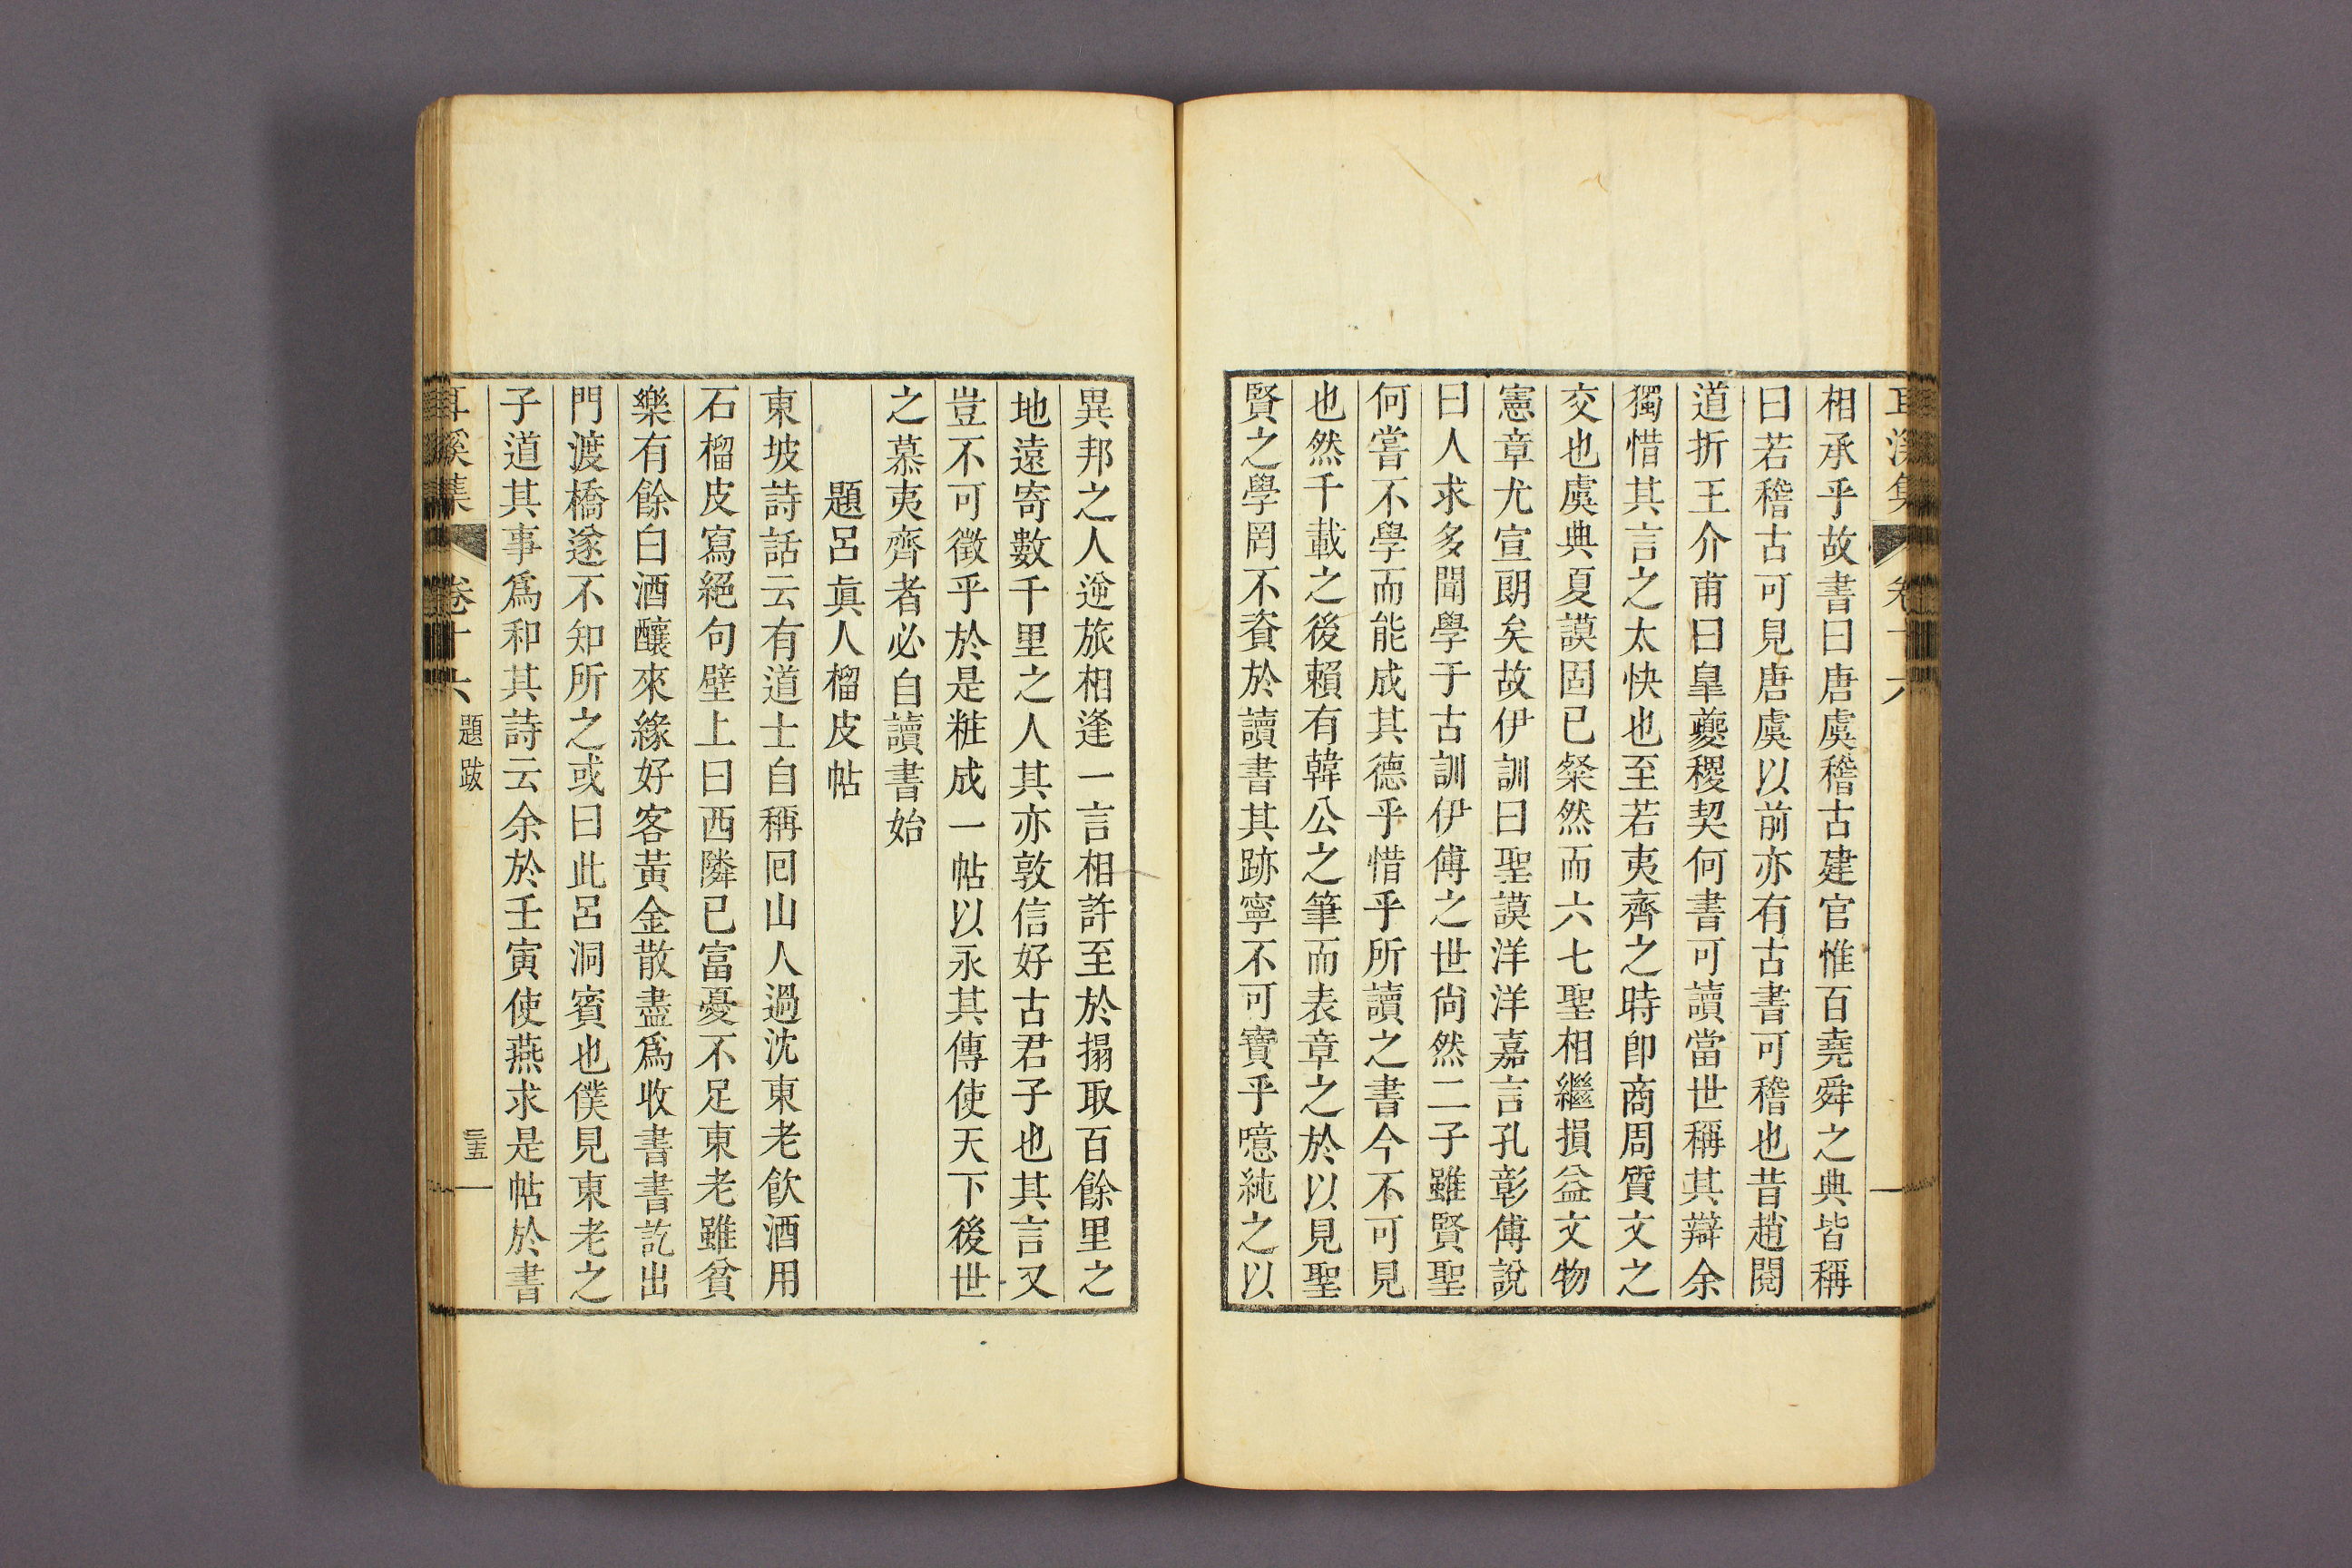 耳溪集 卷十六
相承乎故書曰唐虞稽古建官惟百堯舜之典皆稱
曰若稽古可見唐虞以前亦有古書可稽也昔趙閱
道折王介甫曰皐夔稷契何書可讀當世稱其辯余
獨惜其言之太快也至若夷齊之時卽商周質文之
交也虞典夏謨固已粲然而六七聖相繼損益文物
憲章尤宣朗矣故伊訓曰聖謨洋洋嘉言孔彰傅說
曰人求多聞學于古訓伊傅之世尙然二子雖賢聖
何嘗不學而能成其德乎惜乎所讀之書今不可見
也然千載之後賴有韓公之筆而表章之於以見聖
賢之學罔不資於讀書其跡寧不可寶乎噫純之以
異邦之人逆旅相逢一言相許至於搨取百餘里之
地遠寄數千里之人其亦敦信好古君子也其言又
豈不可徵乎於是粧成一帖以永其傳使天下後世
之慕夷齊者必自讀書始
題呂眞人榴皮帖
東坡詩話云有道士自稱囘山人過沈東老飮酒用
石榴皮寫絕句壁上曰西隣已富憂不足東老雖貧
樂有餘白酒釀來緣好客黃金散盡爲收書書訖出
門渡橋遂不知所之或曰此呂洞賓也僕見東老之
子道其事爲和其詩云余於壬寅使燕求是帖於書
耳溪集 卷十六 題跋 三五